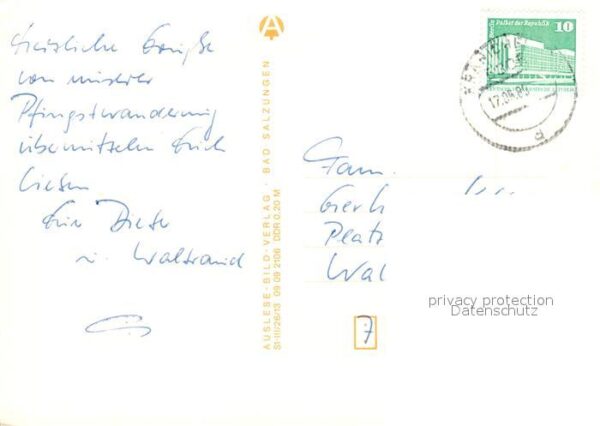 Herzliche Grüße
von unserer
Pfingstwanderung
übermitteln Euch
Eure Dieter
u. Waltraud
AUSLESE-BILD-VERLAG · BAD SALZUNGEN
St-III/26/13 09 09 2106 DDR 0,20 M
Palast der Republik
10
Fam.
Gerh
Platz
Wal
7
privacy protection
Datenschutz